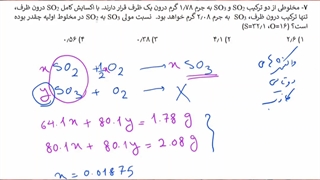 ۷- مخلوطی از دو ترکیب SO₂ و SO₃ به جرم ۱/۷۸ گرم درون یک ظرف قرار دارند. با اکسایش کامل SO₂ درون ظرف،
تنها ترکیب درون ظرف، SO₃ به جرم ۲/۰۸ گرم خواهد بود. نسبت مولی SO₂ به SO₃ در مخلوط اولیه چقدر بوده
است؟ (S=۳۲/۱ ،O=۱۶)
۱) ۲/۶ ۲) ۴/۱ ۳) ۰/۳۸ ۴) ۰/۵۶
x SO₂ + ½ O₂ → x SO₃
y SO₃ + O₂ → X
64.1x + 80.1y = 1.78 g
80.1x + 80.1y = 2.08 g
x = 0.01875